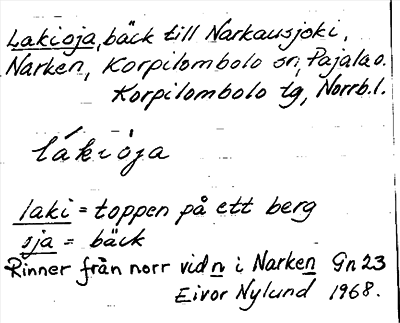 Lakioja, bäck till Narkausjoki,
Narken, Korpilombolo sn, Pajala o.
Korpilombolo tg, Norrb.l.
lákiòja
laki = toppen på ett berg
oja = bäck
Rinner från norr vid n i Narken Gn 23
Eivor Nylund 1968.